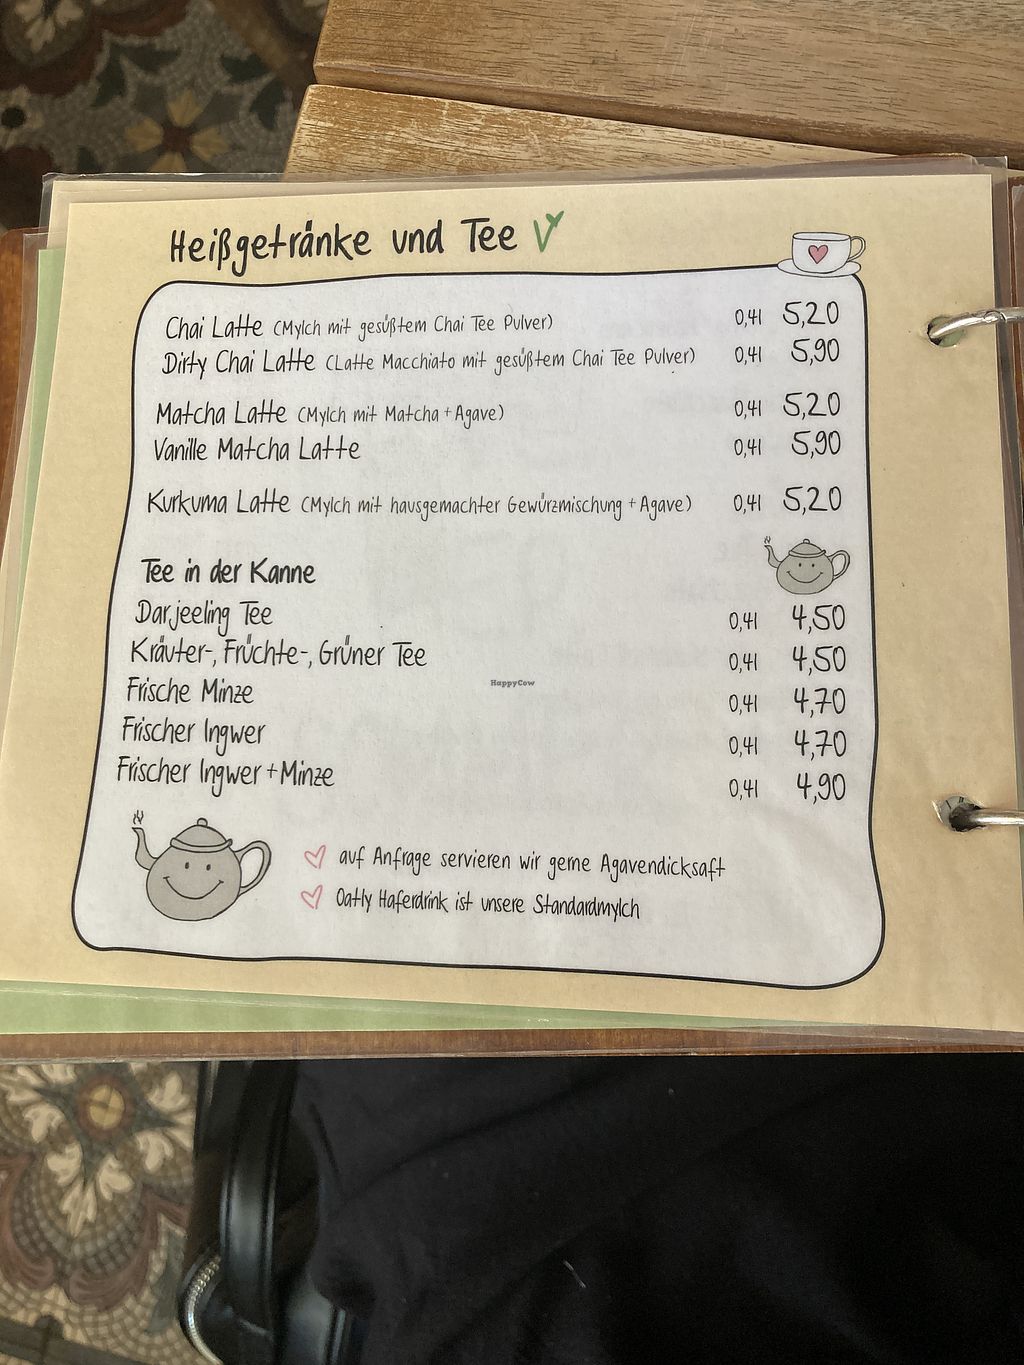 Heißgetränke und Tee V
Chai Latte (Mylch mit gesüßtem Chai Tee Pulver) 0,4l 5,20
Dirty Chai Latte (Latte Macchiato mit gesüßtem Chai Tee Pulver) 0,4l 5,90
Matcha Latte (Mylch mit Matcha + Agave) 0,4l 5,20
Vanille Matcha Latte 0,4l 5,90
Kurkuma Latte (Mylch mit hausgemachter Gewürzmischung + Agave) 0,4l 5,20
Tee in der Kanne
Darjeeling Tee 0,4l 4,50
Kräuter-, Früchte-, Grüner Tee 0,4l 4,50
HappyCow
Frische Minze 0,4l 4,70
Frischer Ingwer 0,4l 4,70
Frischer Ingwer + Minze 0,4l 4,90
auf Anfrage servieren wir gerne Agavendicksaft
Oatly Haferdrink ist unsere Standardmylch